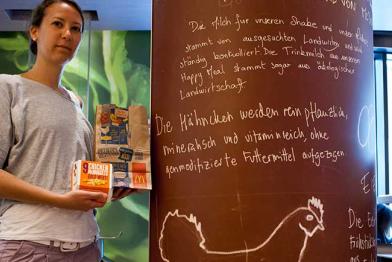 Die Milch für unseren Shake und unser
stammt von ausgesuchten Landwirten und wird
ständig kontrolliert. Die Trinkmilch aus unserem
Happy Meal stammt sogar aus ökologischer
Landwirtschaft.
Die Hähnchen werden rein pflanzlich,
mineralisch und vitaminreich, ohne
genmodifizierte Futtermittel aufgezogen.
Die
Frühstücks
aus
9
CHICKEN